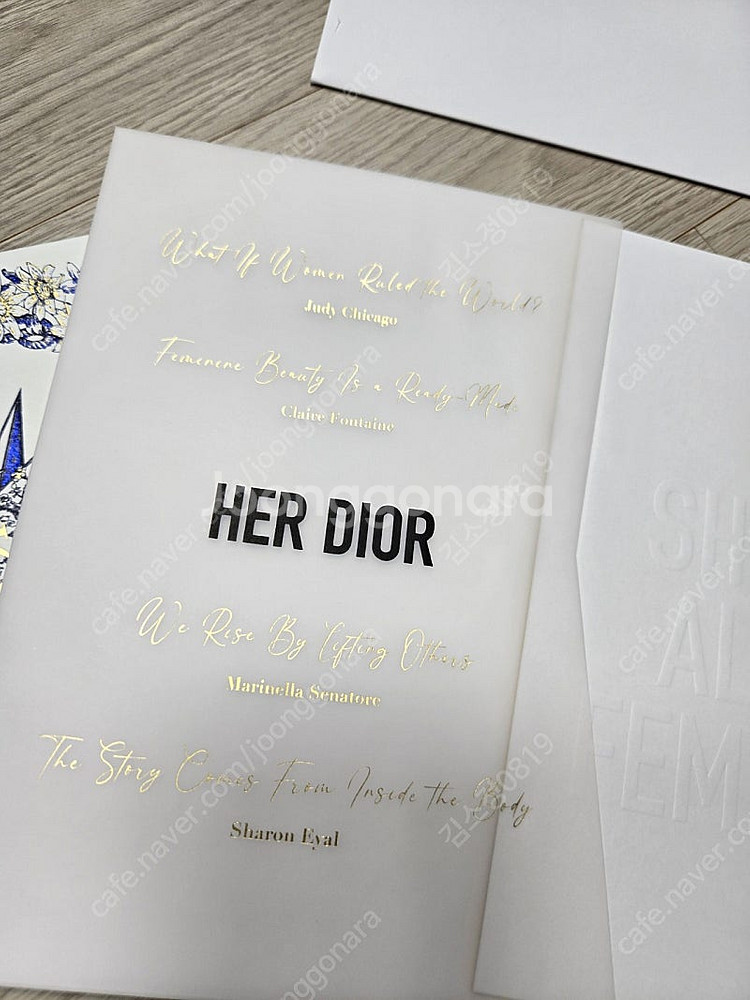 What If Women Ruled the World?
Judy Chicago
Femenene Beauty Is a Ready-Made
Claire Fontaine
HER DIOR
We Rise By Lifting Others
Marinella Senatore
The Story Comes From Inside the Body
Sharon Eyal
SH
AL
FEM
Joonggonara
cafe.naver.com/joonggonara
김소강0819